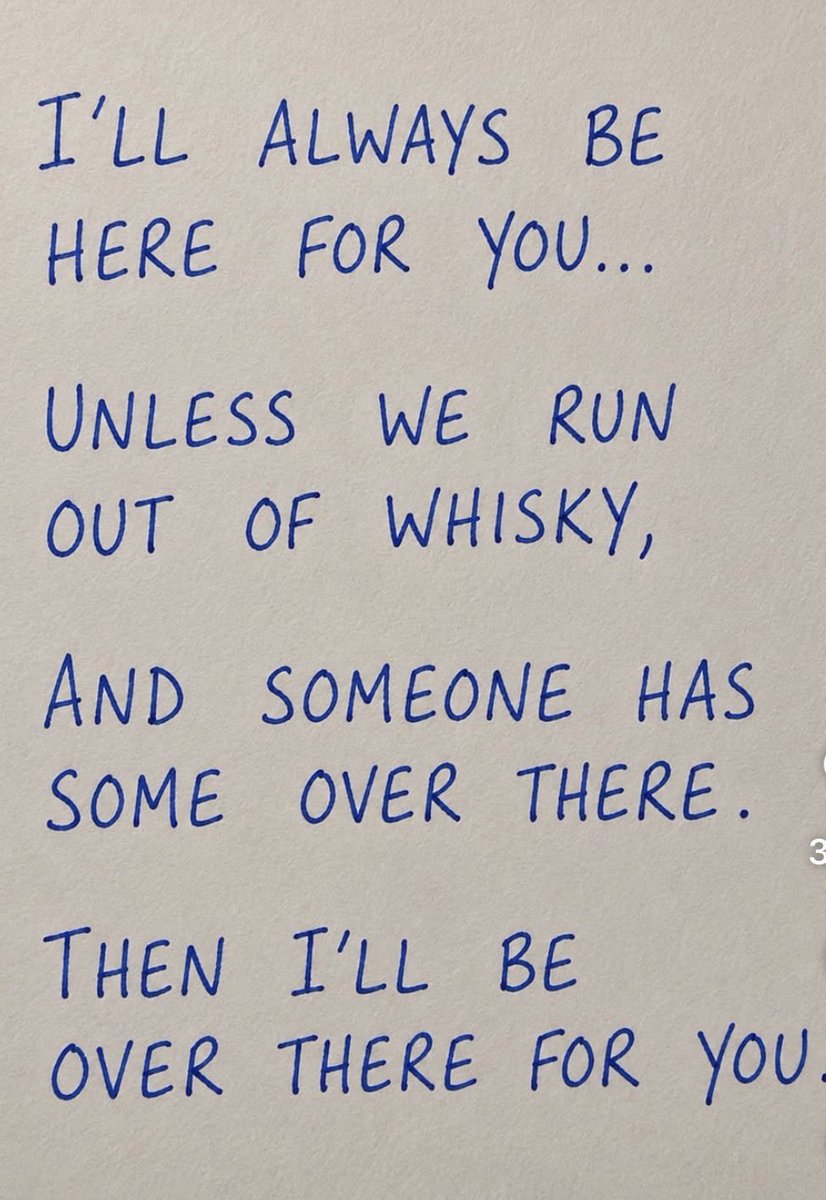 I'LL ALWAYS BE
HERE FOR YOU...
UNLESS WE RUN
OUT OF WHISKY,
AND SOMEONE HAS
SOME OVER THERE.
3
THEN I'LL BE
OVER THERE FOR YOU.